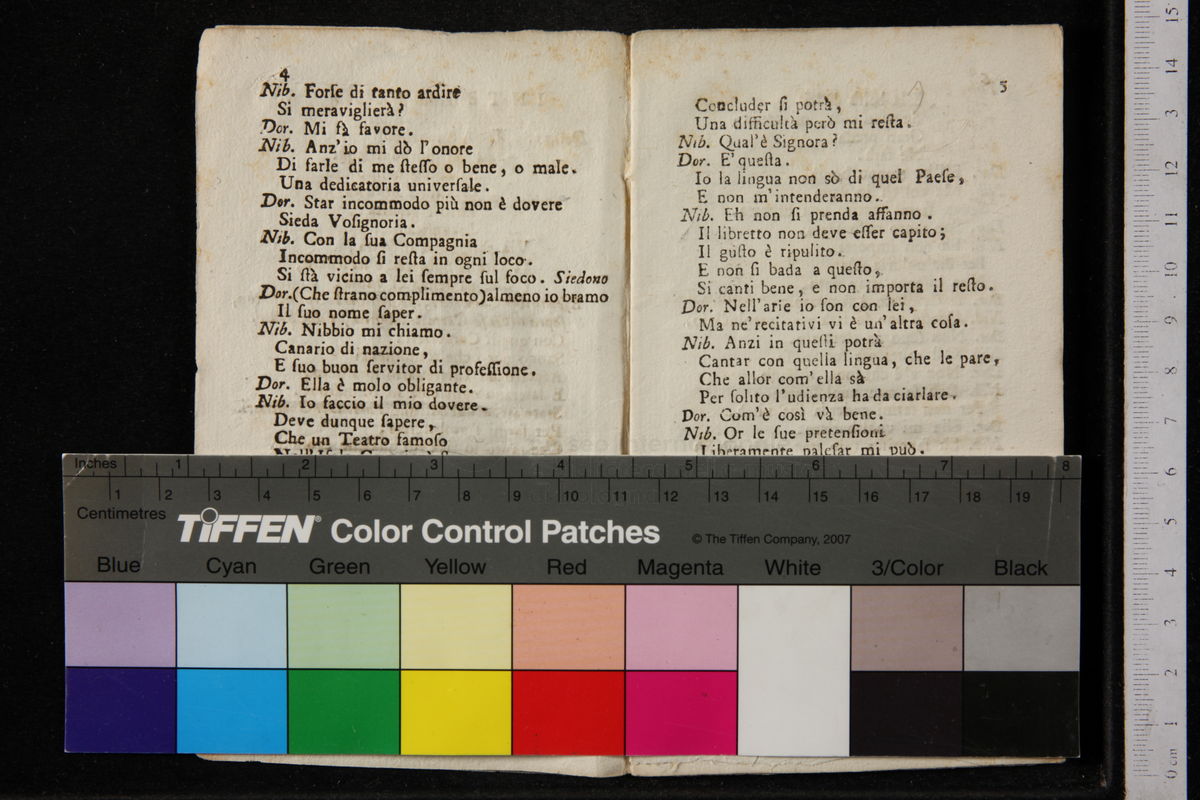 4
Nib. Forſe di tanto ardire
Si meraviglierà?
Dor. Mi fà favore.
Nib. Anz'io mi dò l'onore
Di farle di me ſteſſo o bene, o male.
Una dedicatoria univerſale.
Dor. Star incommodo più non è dovere
Sieda Voſignoria.
Nib. Con la ſua Compagnia
Incommodo ſi reſta in ogni loco.
Si ſtà vicino a lei ſempre ſul foco. Siedono
Dor.(Che ſtrano complimento)almeno io bramo
Il ſuo nome ſaper.
Nib. Nibbio mi chiamo.
Canario di nazione,
E ſuo buon ſervitor di profeſſione.
Dor. Ella è molo obligante.
Nib. Io faccio il mio dovere.
Deve dunque ſapere,
Che un Teatro famoſo
5
Concluder ſi potrà,
Una difficultà però mi reſta.
Nib. Qual'è Signora?
Dor. E' queſta.
Io la lingua non sò di quel Paeſe,
E non m'intenderanno.
Nib. Eh non ſi prenda affanno.
Il libretto non deve eſſer capito;
Il guſto è ripulito.
E non ſi bada a queſto,
Si canti bene, e non importa il reſto.
Dor. Nell'arie io ſon con lei,
Ma ne'recitativi vi è un'altra coſa.
Nib. Anzi in queſti potrà
Cantar con quella lingua, che le pare,
Che allor com'ella sà
Per ſolito l'udienza ha da ciarlare.
Dor. Com'è così và bene.
Nib. Or le ſue pretenſioni
Liberamente paleſar mi può.
Inches 1 2 3 4 5 6 7 8
1 2 3 4 5 6 7 8 9 10 11 12 13 14 15 16 17 18 19
Centimetres
TIFFEN® Color Control Patches
© The Tiffen Company, 2007
Blue Cyan Green Yellow Red Magenta White 3/Color Black
15 14 13 12 11 10 9 8 7 6 5 4 3 2 1 0 cm